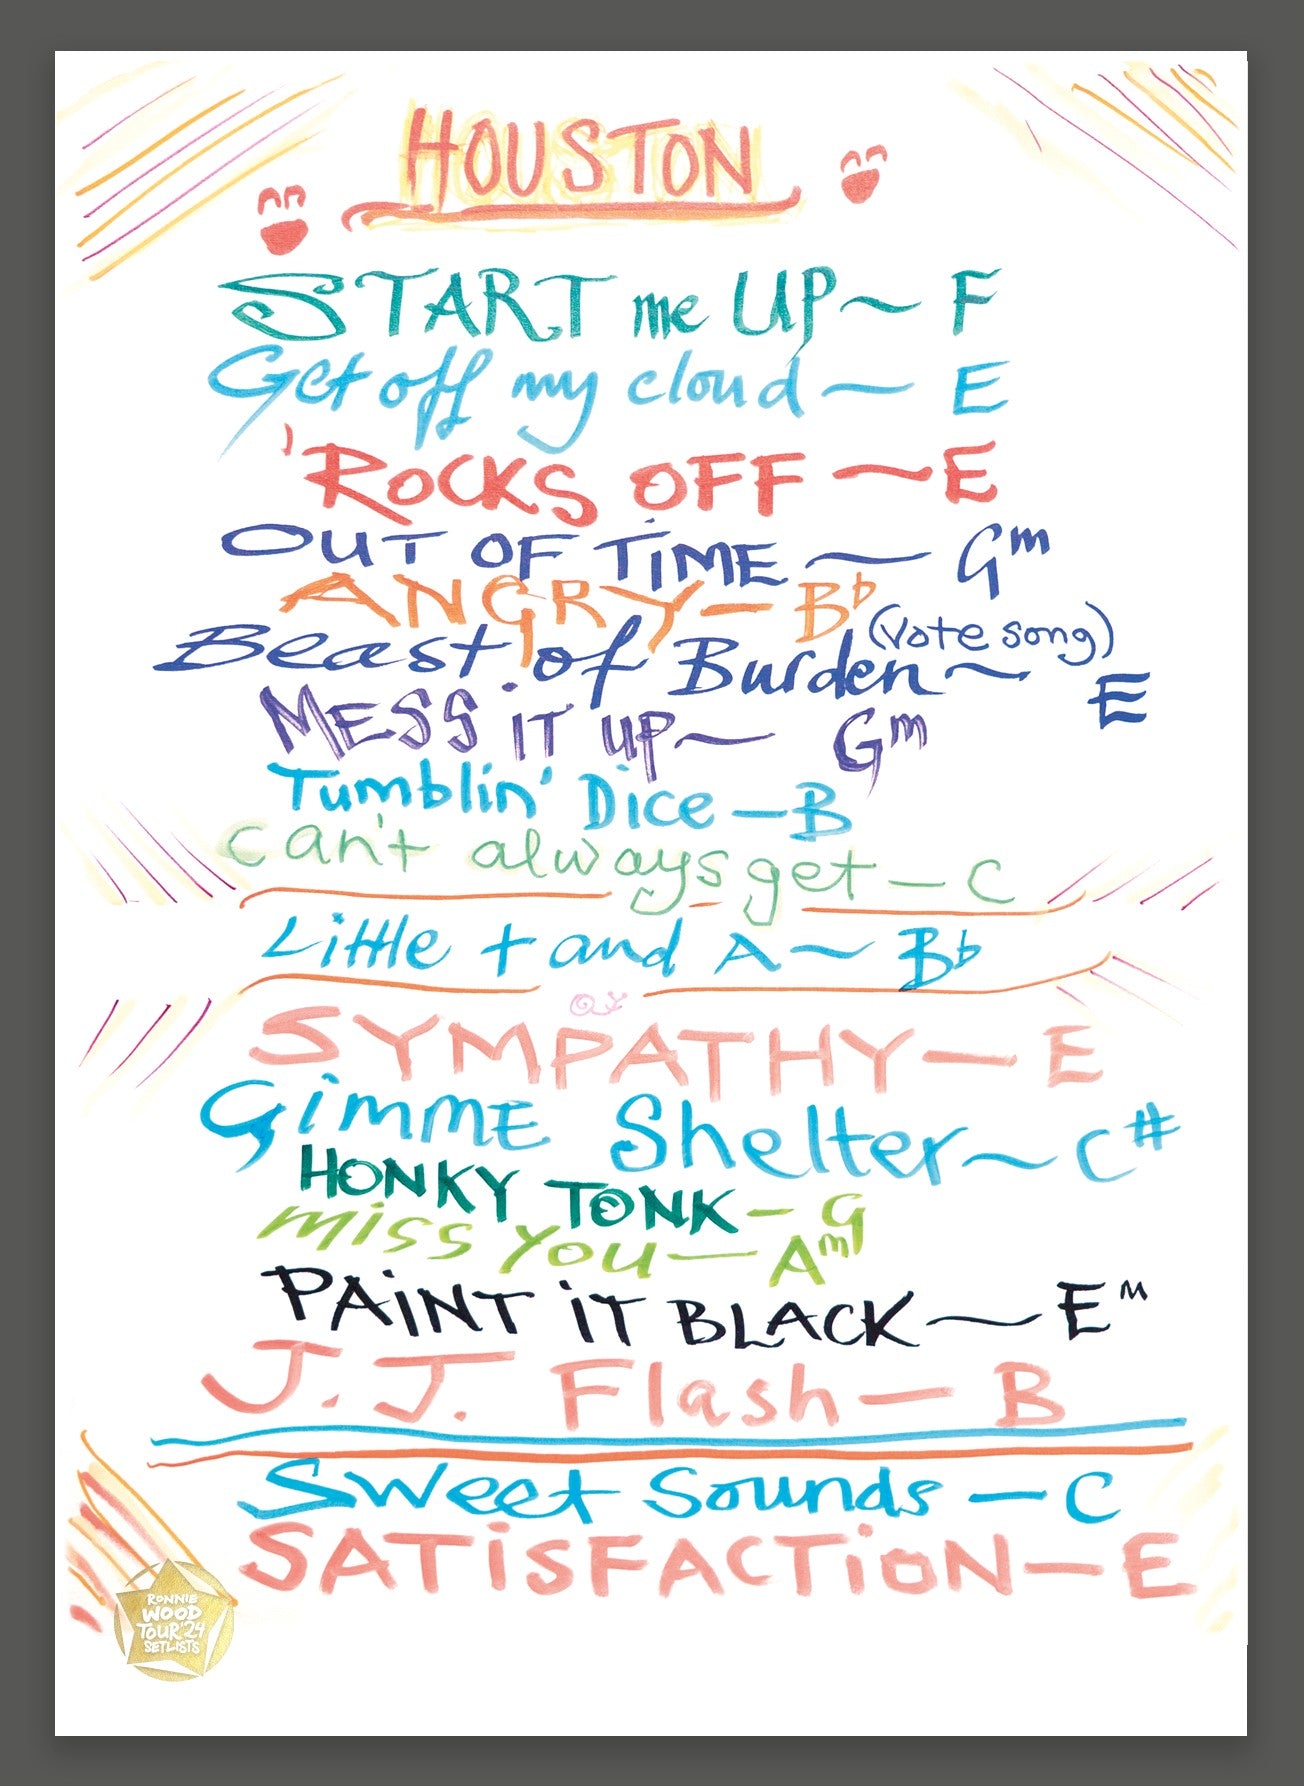 HOUSTON
START me UP ~ F
Get off my cloud ~ E
'ROCKS OFF ~ E
OUT OF TIME ~ Gm
ANGRY - B♭
(Vote song)
Beast of Burden ~ E
MESS IT UP ~ Gm
Tumblin' Dice - B
can't always get - C
Little + and A ~ B♭
or
SYMPATHY - E
GIMME Shelter ~ C#
HONKY TONK - G
miss you - Am
PAINT IT BLACK ~ Em
J.J. Flash - B
Sweet Sounds - C
SATISFACTION - E
RONNIE
WOOD
TOUR '24
SETLISTS